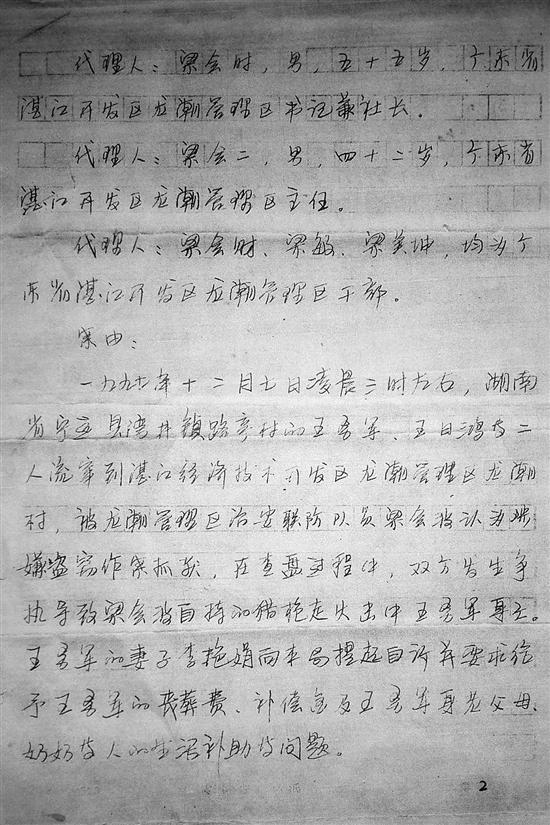 代理人：梁会时，男，五十五岁，广东省
湛江开发区龙潮管理区书记兼社长。
代理人：梁会二，男，四十二岁，广东省
湛江开发区龙潮管理区主任。
代理人：梁会时、梁敏、梁美坤，均为广
东省湛江开发区龙潮管理区干部。
案由：
一九九七年十二月七日凌晨三时左右，湖南
省宁远县湾井镇路亭村的王军、王日鸿等二
人流窜到湛江经济技术开发区龙潮管理区龙潮
村，被龙潮管理区治安联防队员梁会波认为涉
嫌盗窃作案抓获，在查盘过程中，双方发生争
执导致梁会波自持的猎枪走火击中王军身亡。
王军的妻子李艳娟向本局提起自诉并要求给
予王军的丧葬费、补偿金及王军身后父母、
奶奶等人的生活补助等问题。
2